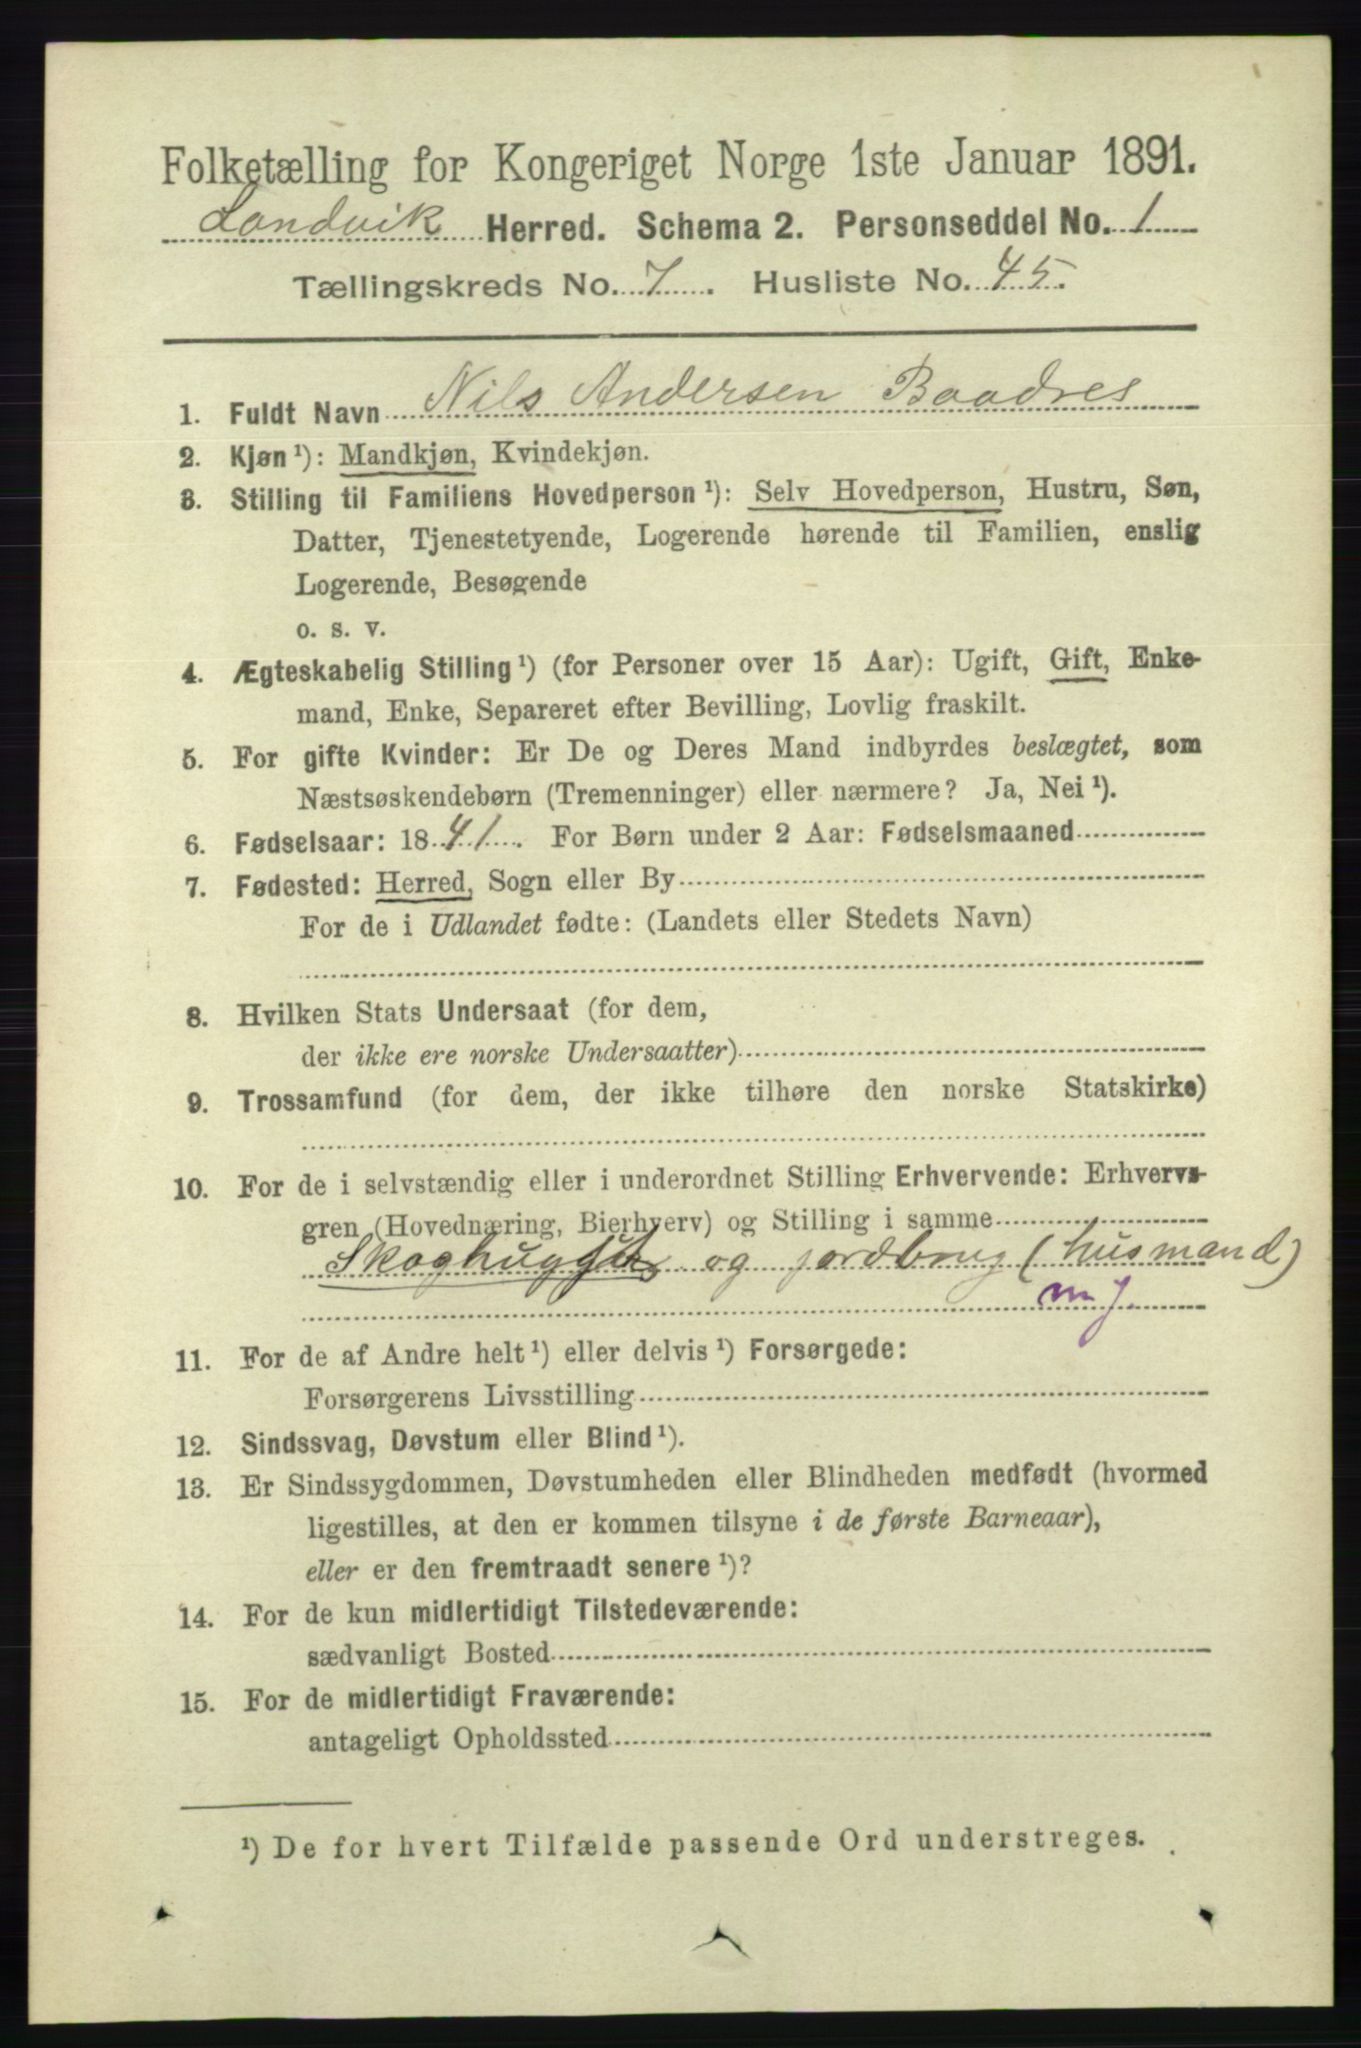 Folketælling for Kongeriget Norge 1ste Januar 1891.
Landvik Herred. Schema 2. Personseddel No. 1
Tællingskreds No. 7. Husliste No. 45.
1. Fuldt Navn Nils Andersen Baadres
2. Kjøn ¹): Mandkjøn, Kvindekjøn.
3. Stilling til Familiens Hovedperson ¹): Selv Hovedperson, Hustru, Søn,
Datter, Tjenestetyende, Logerende hørende til Familien, enslig
Logerende, Besøgende
o. s. v.
4. Ægteskabelig Stilling ¹) (for Personer over 15 Aar): Ugift, Gift, Enke-
mand, Enke, Separeret efter Bevilling, Lovlig fraskilt.
5. For gifte Kvinder: Er De og Deres Mand indbyrdes beslægtet, som
Næstsøskendebørn (Tremenninger) eller nærmere? Ja, Nei ¹).
6. Fødselsaar: 1841. For Børn under 2 Aar: Fødselsmaaned
7. Fødested: Herred, Sogn eller By
For de i Udlandet fødte: (Landets eller Stedets Navn)
8. Hvilken Stats Undersaat (for dem,
der ikke ere norske Undersaatter)
9. Trossamfund (for dem, der ikke tilhøre den norske Statskirke)
10. For de i selvstændig eller i underordnet Stilling Erhvervende: Erhvervs-
gren (Hovednæring, Bierhverv) og Stilling i samme
og jordbrug (husmand)
m j.
11. For de af Andre helt ¹) eller delvis ¹) Forsørgede:
Forsørgerens Livsstilling
12. Sindssvag, Døvstum eller Blind ¹).
13. Er Sindssygdommen, Døvstumheden eller Blindheden medfødt (hvormed
ligestilles, at den er kommen tilsyne i de første Barneaar),
eller er den fremtraadt senere ¹)?
14. For de kun midlertidigt Tilstedeværende:
sædvanligt Bosted
15. For de midlertidigt Fraværende:
antageligt Opholdssted
¹) De for hvert Tilfælde passende Ord understreges.